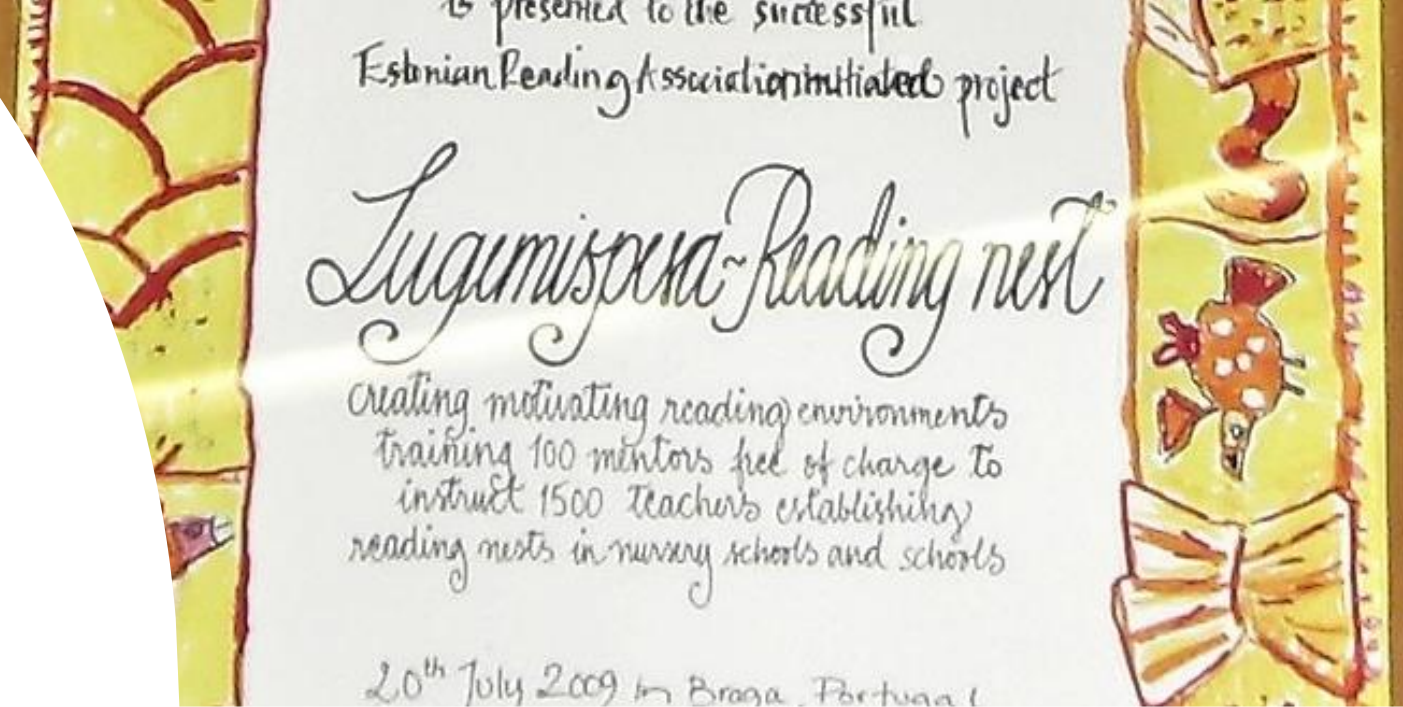 is presented to the successful
Estonian Reading Association initiated project
Lugemispesa~Reading nest
creating motivating reading environments
training 100 mentors free of charge to
instruct 1500 teachers establishing
reading nests in nursery schools and schools
20th July 2009 in Braga, Portugal